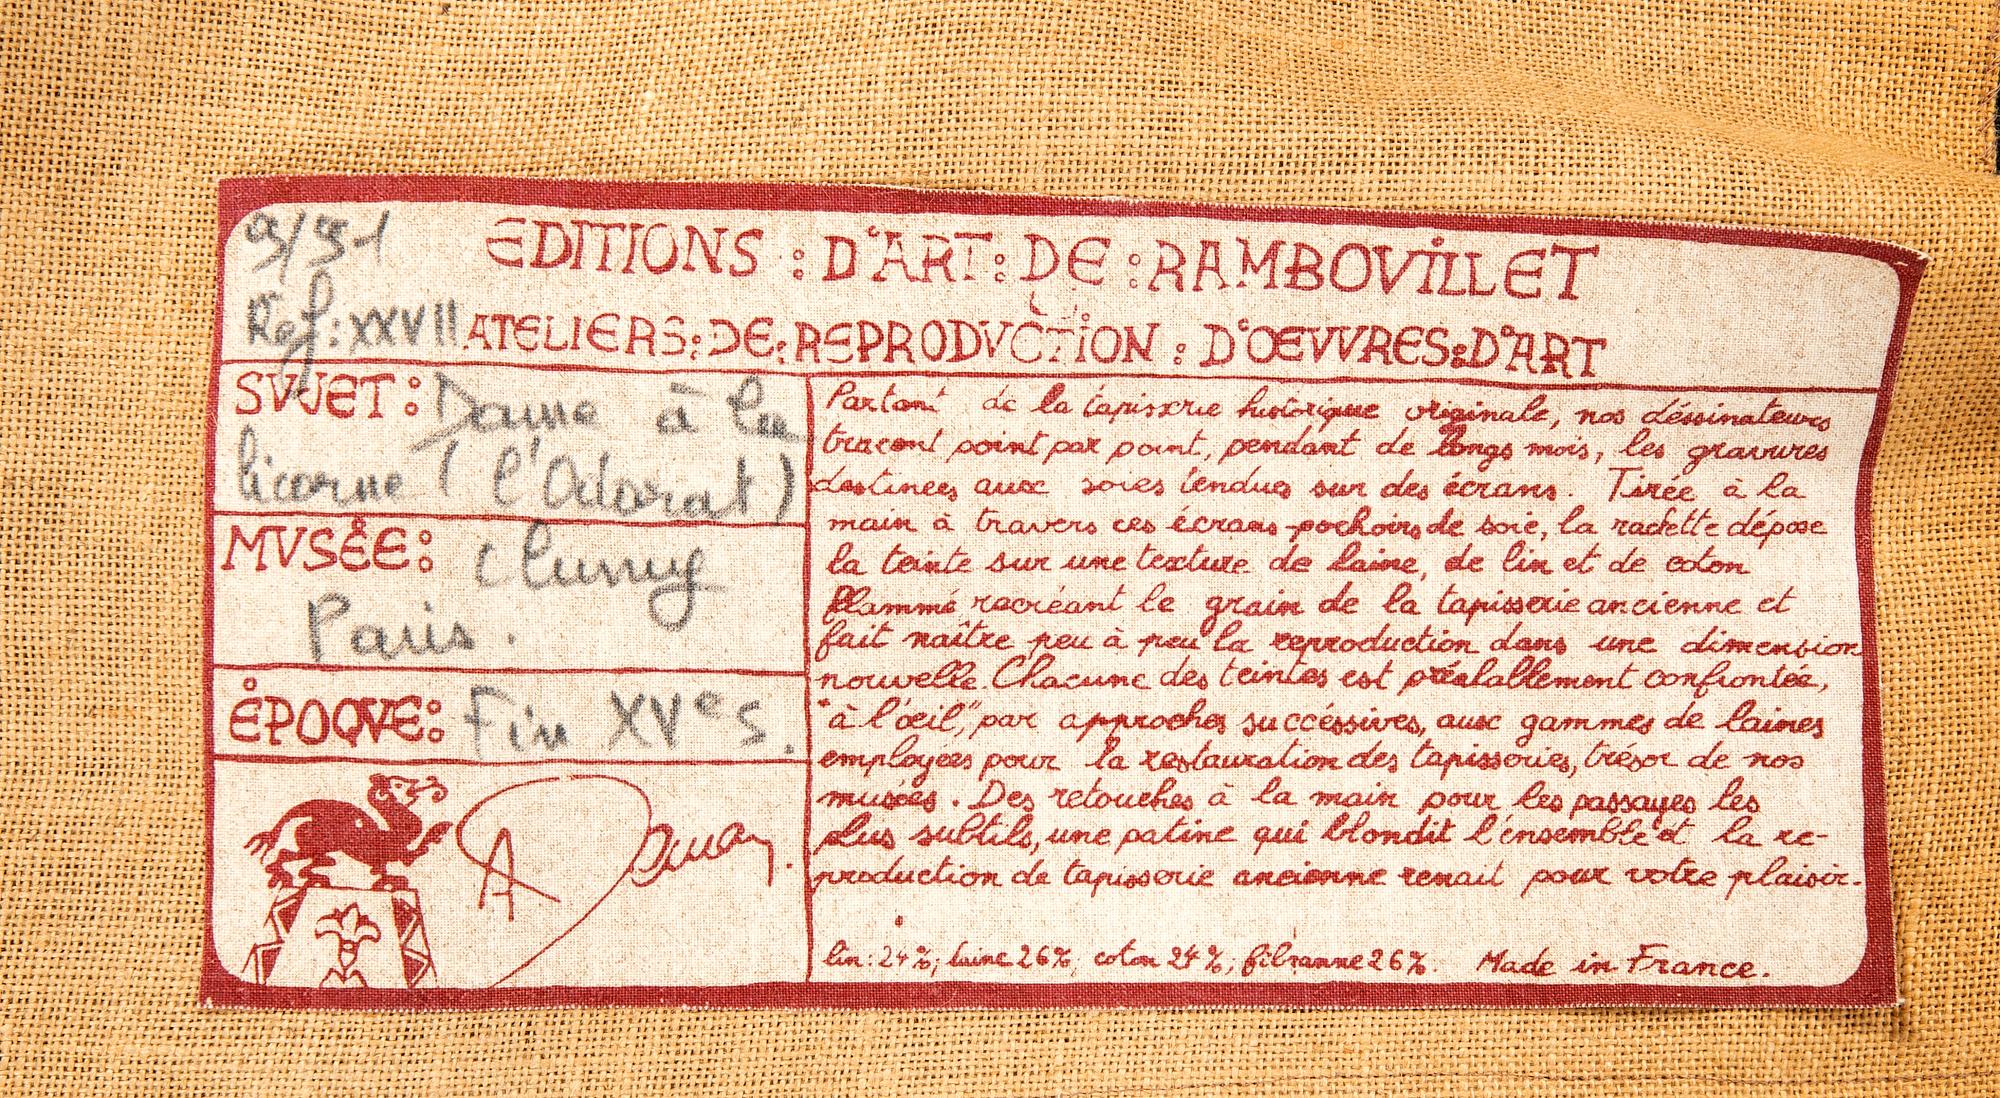 9/91
EDITIONS : D'ART : DE : RAMBOVILLET
Réf : XXVII
ATELIERS : DE : REPRODVCTION : D'ŒVVRES : D'ART
SVJET : Dame à la
licorne ( l'Odorat )
MVSÉE : Cluny
Paris .
ÉPOQVE : Fin XVe s.
Partant de la tapisserie historique originale, nos déssinateurs
tracent point par point, pendant de longs mois, les gravures
destinées aux soies tendues sur des écrans. Tirée à la
main à travers ces écrans-pochoirs de soie, la raclette dépose
la teinte sur une texture de laine, de lin et de coton
flammé recréant le grain de la tapisserie ancienne et
fait naître peu à peu la reproduction dans une dimension
nouvelle. Chacune des teintes est préalablement confrontée,
"à l'œil", par approches succéssives, aux gammes de laines
employées pour la restauration des tapisseries, trésor de nos
musées. Des retouches à la main pour les passages les
plus subtils, une patine qui blondit l'ensemble et la re-
production de tapisserie ancienne renait pour votre plaisir.
lin : 24%; laine 26%; coton 24%; fibranne 26%. Made in France.